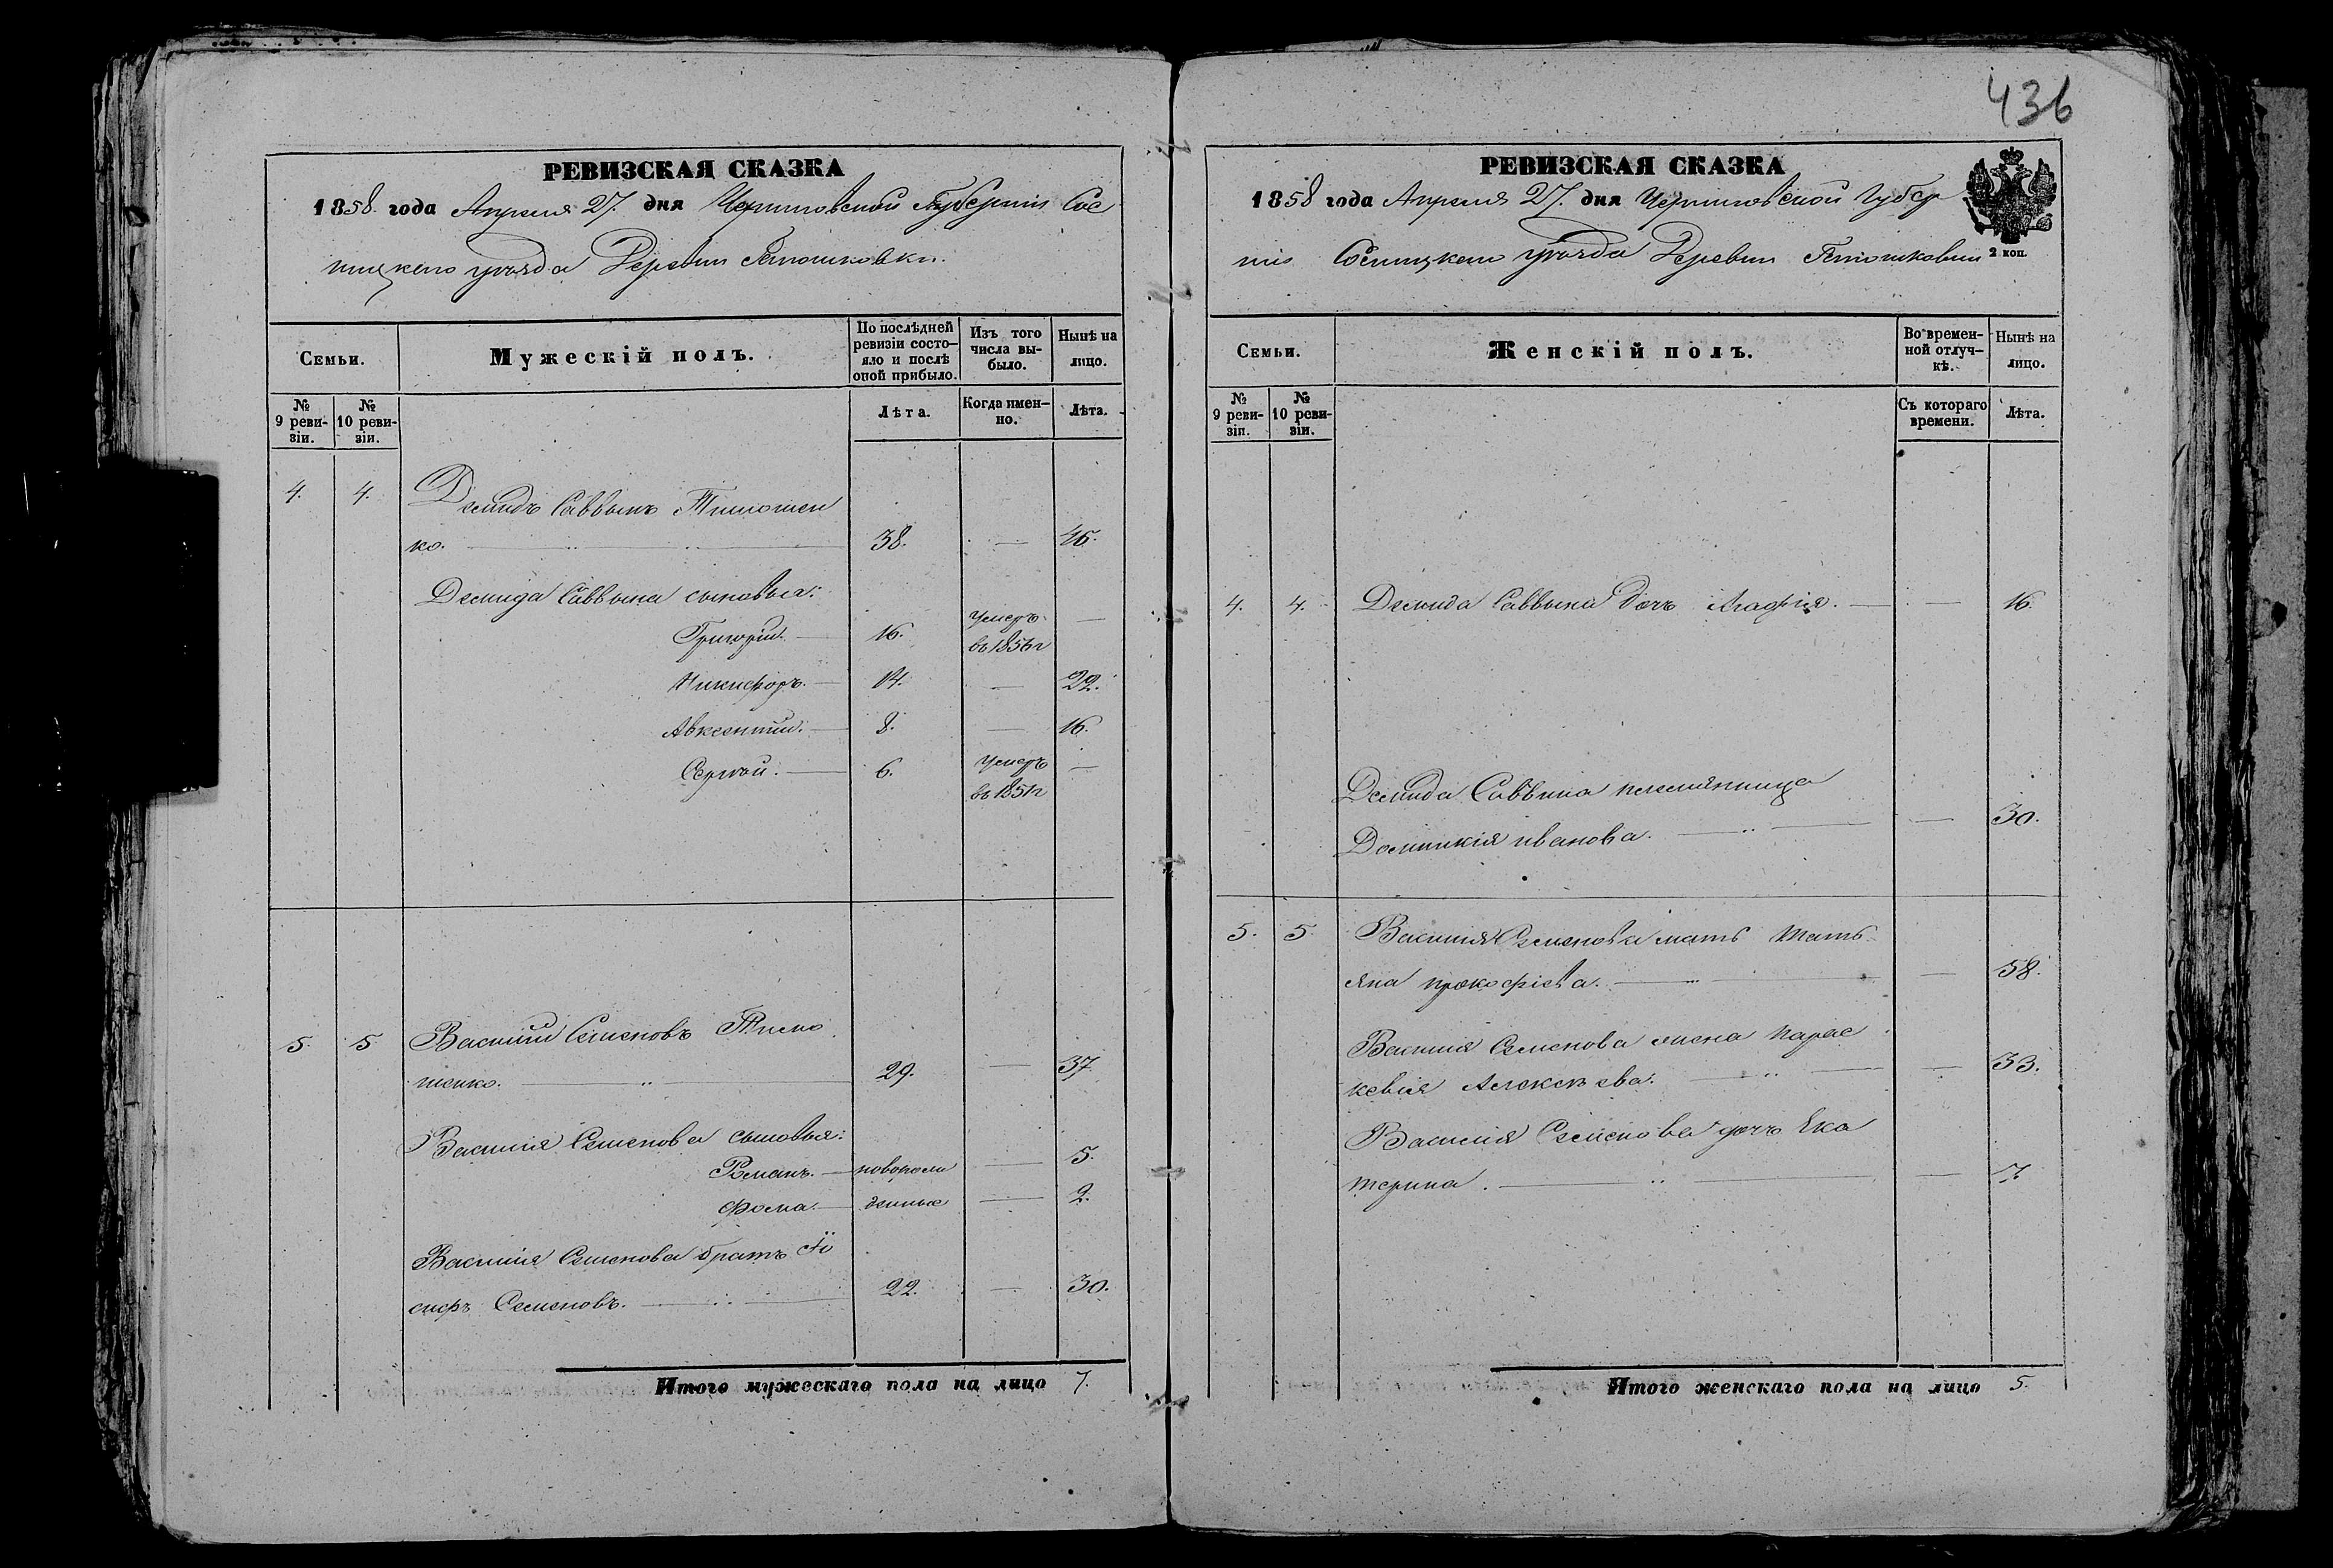 436
РЕВИЗСКАЯ СКАЗКА
1858 года Апреля 27. дня Черниговской Губерніи Сос
ницкаго уѣзда Деревни
Семьи.
Мужескій полъ.
По послѣдней ревизіи состояло и послѣ оной прибыло.
Изъ того числа выбыло.
Нынѣ на лицо.
№ 9 ревизіи.
№ 10 ревизіи.
Лѣта.
Когда именно.
Лѣта.
4. 4. Демидъ Саввинъ Тимошен
ко. 38. — 46.
Демида Саввина сыновья:
Григорій. — 16. умеръ въ 1856 г —
Никифоръ. — 14. — 22.
Авксентій. — 8. — 16.
Сергѣй. — 6. умеръ въ 1851 г —
5. 5 Василій Семеновъ Тимо
шенко. 29. — 37
Василія Семенова сыновья:
Романъ. — новорож — 5.
Фома. — денные — 2.
Василія Семенова братъ Іо
сифъ Семеновъ. 22. — 30.
Итого мужескаго пола на лицо 7.
РЕВИЗСКАЯ СКАЗКА
1858 года Апреля 27. дня Черниговской Губер
ніи Сосницкаго уѣзда Деревни
2 коп.
Семьи.
Женскій полъ.
Во временной отлучкѣ.
Нынѣ на лицо.
№ 9 ревизіи.
№ 10 ревизіи.
Съ котораго времени.
Лѣта.
4. 4. Демида Саввина дочь Агафія. — — 16.
Демида Саввина племянница
Домникія иванова. — 30.
5. 5 Василія Семенова мать Тать
яна прокофіева. — 58.
Василія Семенова жена парас
кевія Алексѣева. — 33.
Василія Семенова дочь Ека
терина. — 7
Итого женскаго пола на лицо 5.